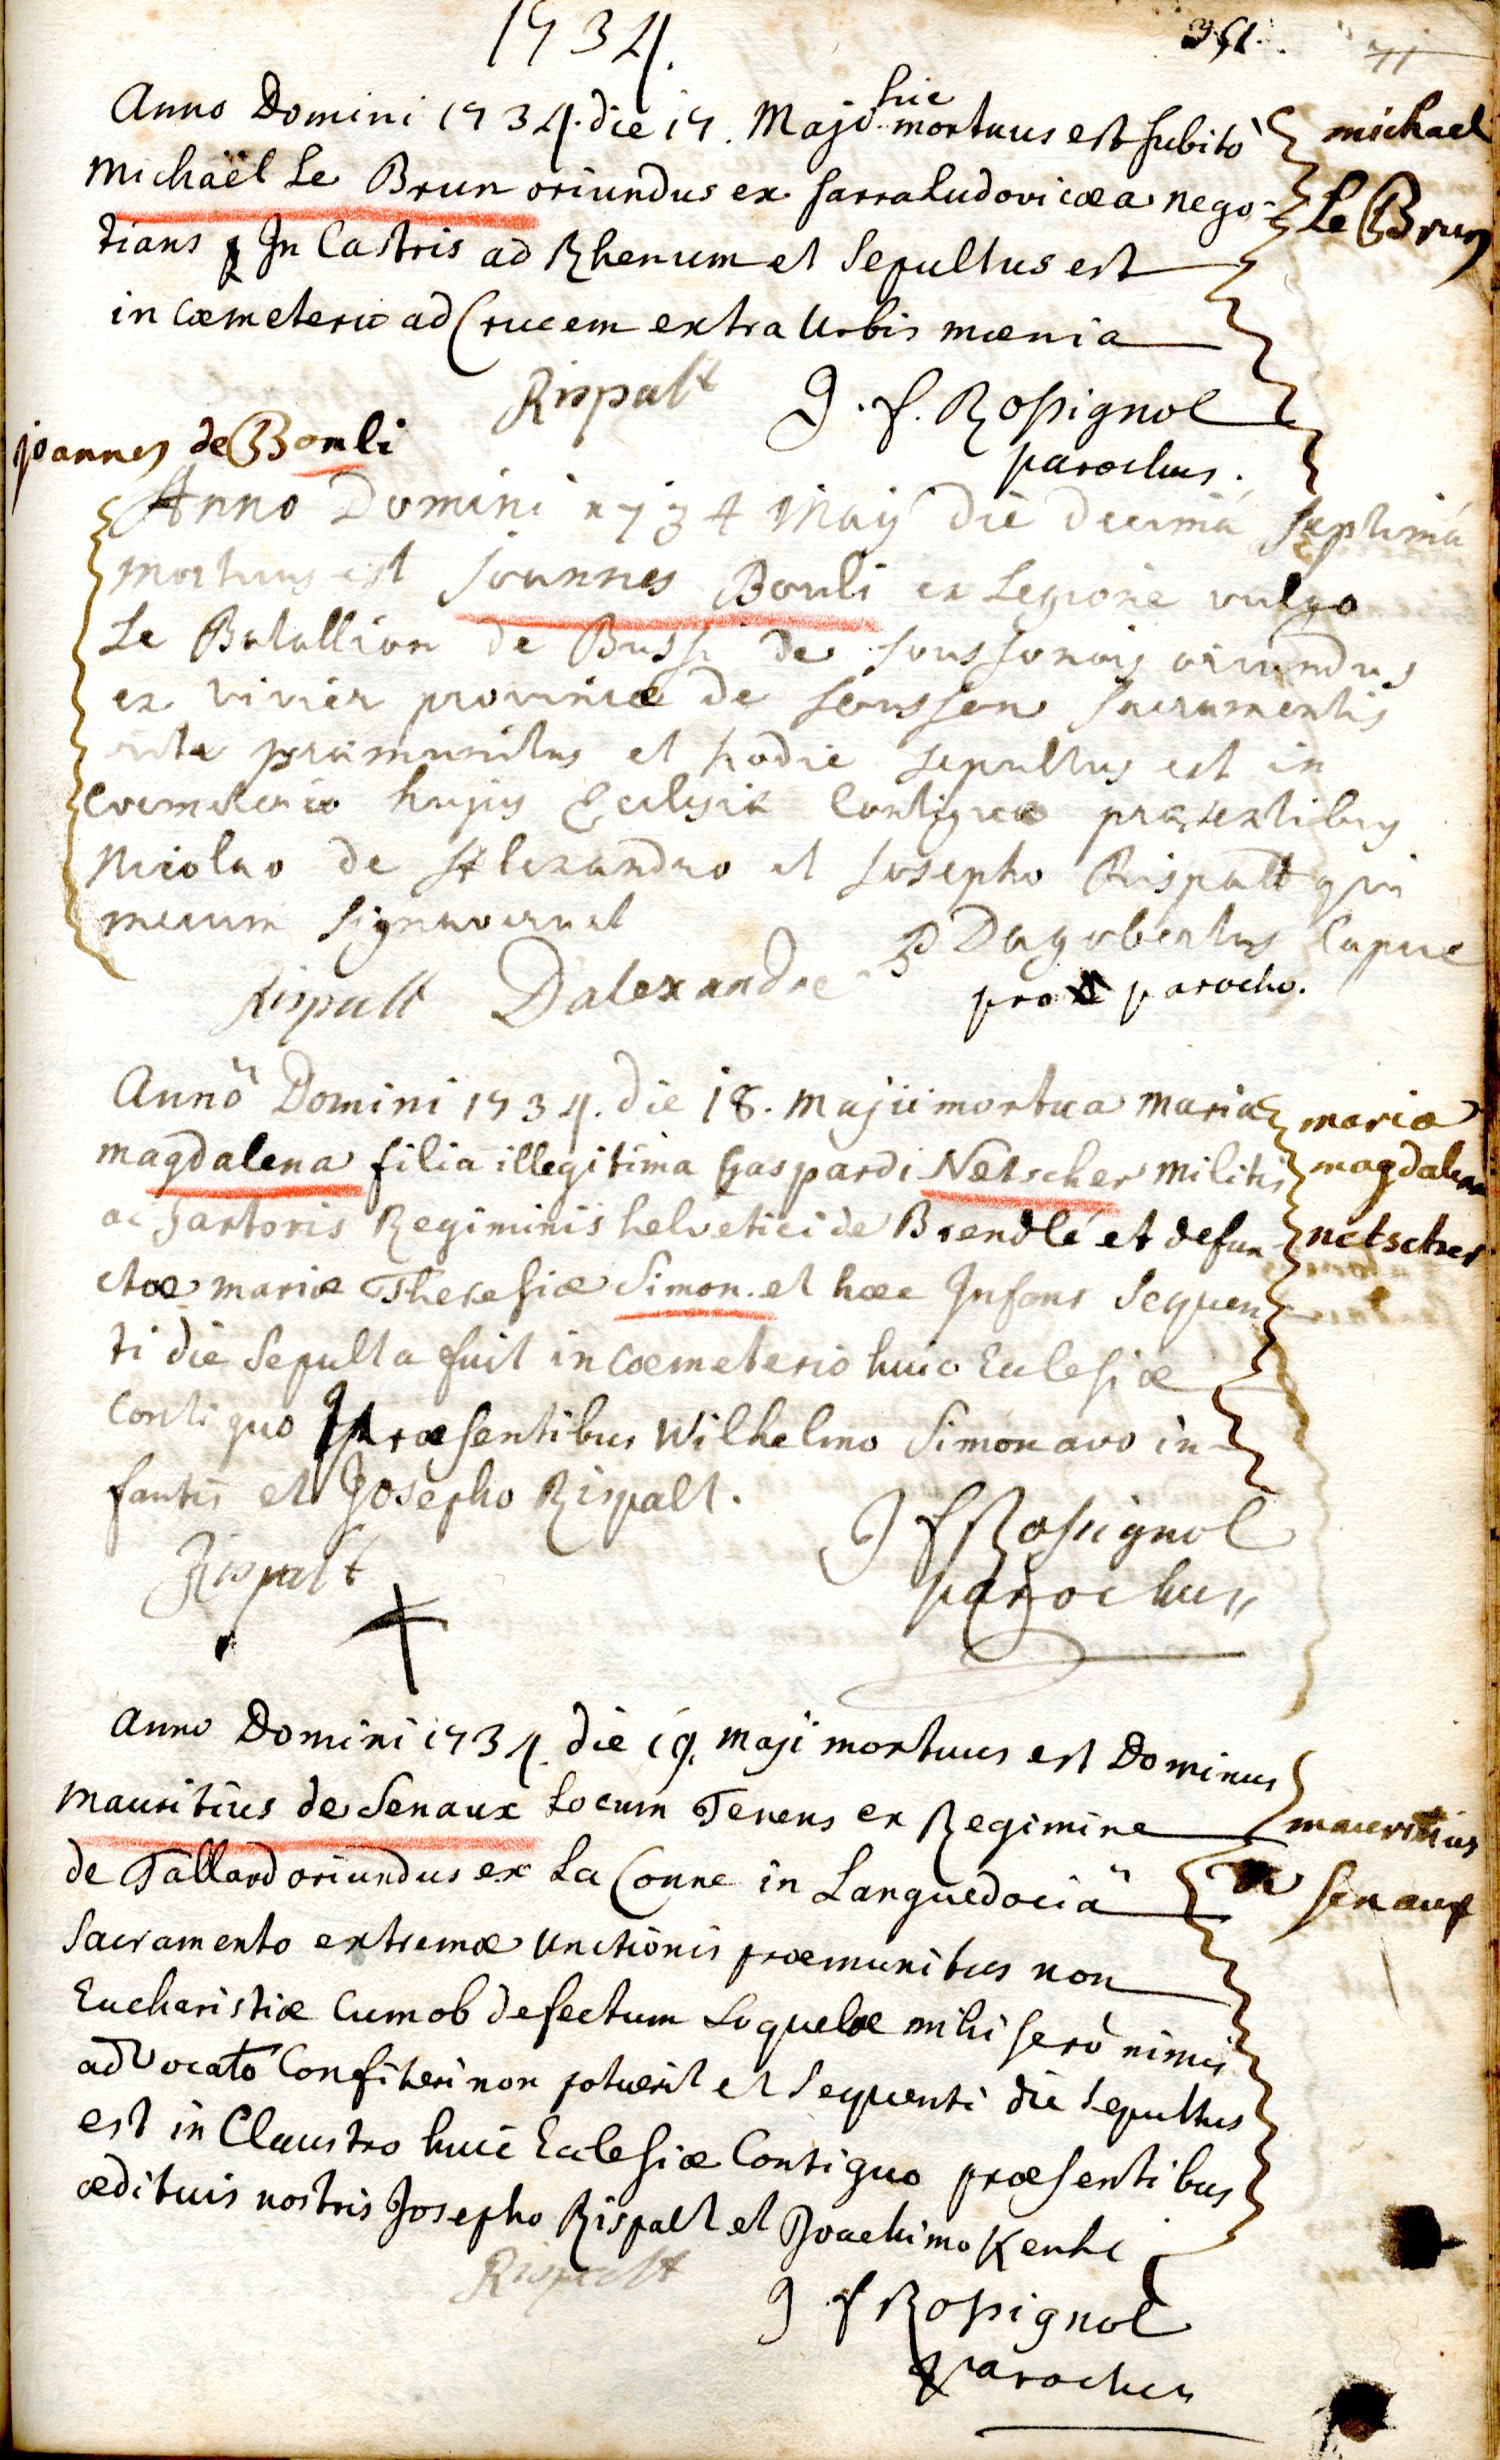 1734.
351.
71
Anno Domini 1734. die 17. Maji hic mortuus est subitò
Michaël Le Brun oriundus ex SarraLudovicæa nego-
tians In Castris ad Rhenum et Sepultus est
in Cæmeterio ad Crucem extra Urbis mænia
Rispalt J. f. Rossignol
parochus.
michael
Le Brun
joannes de Bouli
Anno Domini 1734 Maij die decimâ septimâ
mortuus est Joannes Bouli ex Legione vulgo
Le Batallion de Bussi de soussonois oriundus
ex vivier provinciæ de sousson sacramentis
rite præmunitus et hodie sepultus est in
Coemeterio hujus Ecclesiæ Contiguo præsentibus
Nicolao de Alexandro et Josepho Rispalt qui
mecum signaverunt
Rispalt Dalexandre P Dagobertus Capuc
pro parocho.
Annô Domini 1734. die 18. Maji mortua Maria
Magdalena filia illegitima Gaspardi Netscher Militis
ac Sartoris Regiminis helvetici de Brendlé et defun-
ctæ mariæ Theresiæ Simon. et hæc Infans Sequen-
ti die Sepulta fuit in Cæmeterio huic Ecclesiæ
Contiguo Præsentibus Wilhelmo Simon avo in-
fantis et Josepho Rispalt.
Rispalt J f Rossignol
parochus
maria
magdalena
netscher
Anno Domini 1734. die 19. Maji mortuus est Dominus
Mauritius de Senaux Locum Tenens ex Regimine
de Tallard oriundus ex La Conne in Languedociâ
Sacramento extremæ Unctionis præmunitus non
Eucharistiæ Cum ob defectum Loquelæ mihi serò nimis
advocato Confiteri non potuerit et Sequenti die Sepultus
est in Claustro huic Ecclesiæ Contiguo præsentibus
ædituis nostris Josepho Rispalt et Joachimo
Rispalt J f Rossignol
parochus
mauritius
de Senaux